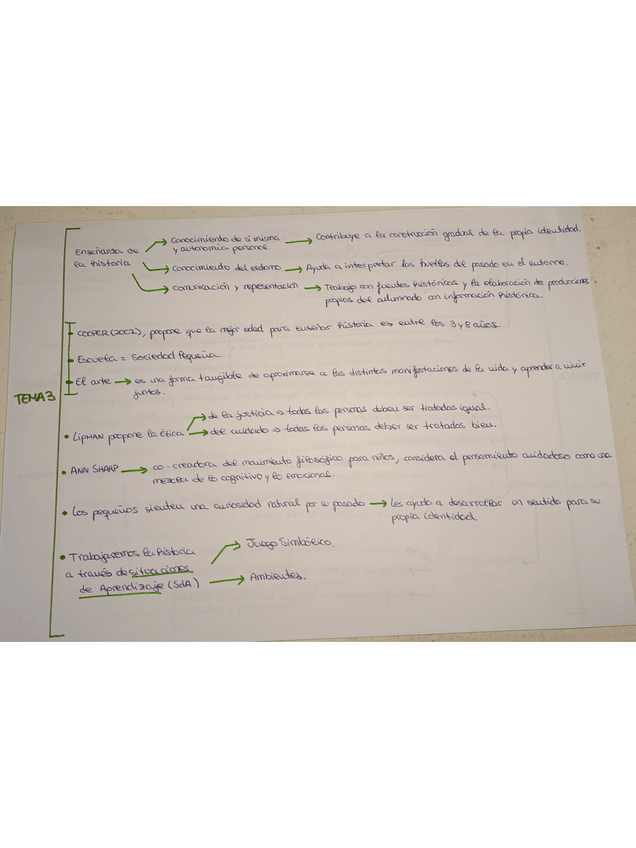 TEMA 3
Enseñanza de la historia
→ Conocimiento de si misma y autonomia personal. → Contribuye a la construcción gradual de la propia identidad.
→ Conocimiento del entorno → Ayuda a interpretar las huellas del pasado en el entorno.
→ comunicación y representación → Trabajo con fuentes históricas y la elaboración de producciones propias del alumnado con información histórica.
- COOPER (2002), propone que la mejor edad para enseñar historia es entre los 3 y 8 años.
- Escuela = Sociedad Pequeña
- El arte → es una forma tangible de aproximarse a las distintas manifestaciones de la vida y aprender a vivir juntos.
• LIPMAN propone la ética
→ de la justicia → todas las personas deben ser tratadas igual.
→ del cuidado → todas las personas deber ser tratadas bien.
• ANN SHARP → co-creadora del movimiento filosófico para niños, considera el pensamiento cuidadoso como una mezcla de lo cognitivo y lo emocional.
• Los pequeños sienten una curiosidad natural por su pasado → Les ayuda a desarrollar un sentido para su propia identidad
• Trabajaremos la historia a través de situaciones de Aprendizaje (SdA.)
→ Juego Simbólico.
→ Ambientes.